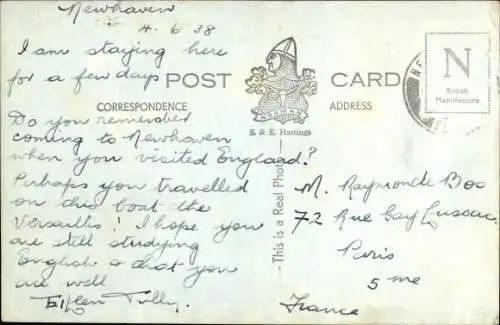 Newhaven
4. 6. 38
I am staying here
for a few days
Do you remember
coming to Newhaven
when you visited England?
Perhaps you travelled
on this boat the
Versailles! I hope you
are still studying
English & that you
are well
Tully.
POST CARD
CORRESPONDENCE
ADDRESS
NORMAN
S. & E. Hastings
This is a Real Photo
N
British
Manufacture.
M. Raymonde Bos
72 Rue Gay Lussac
Paris
5 me
France